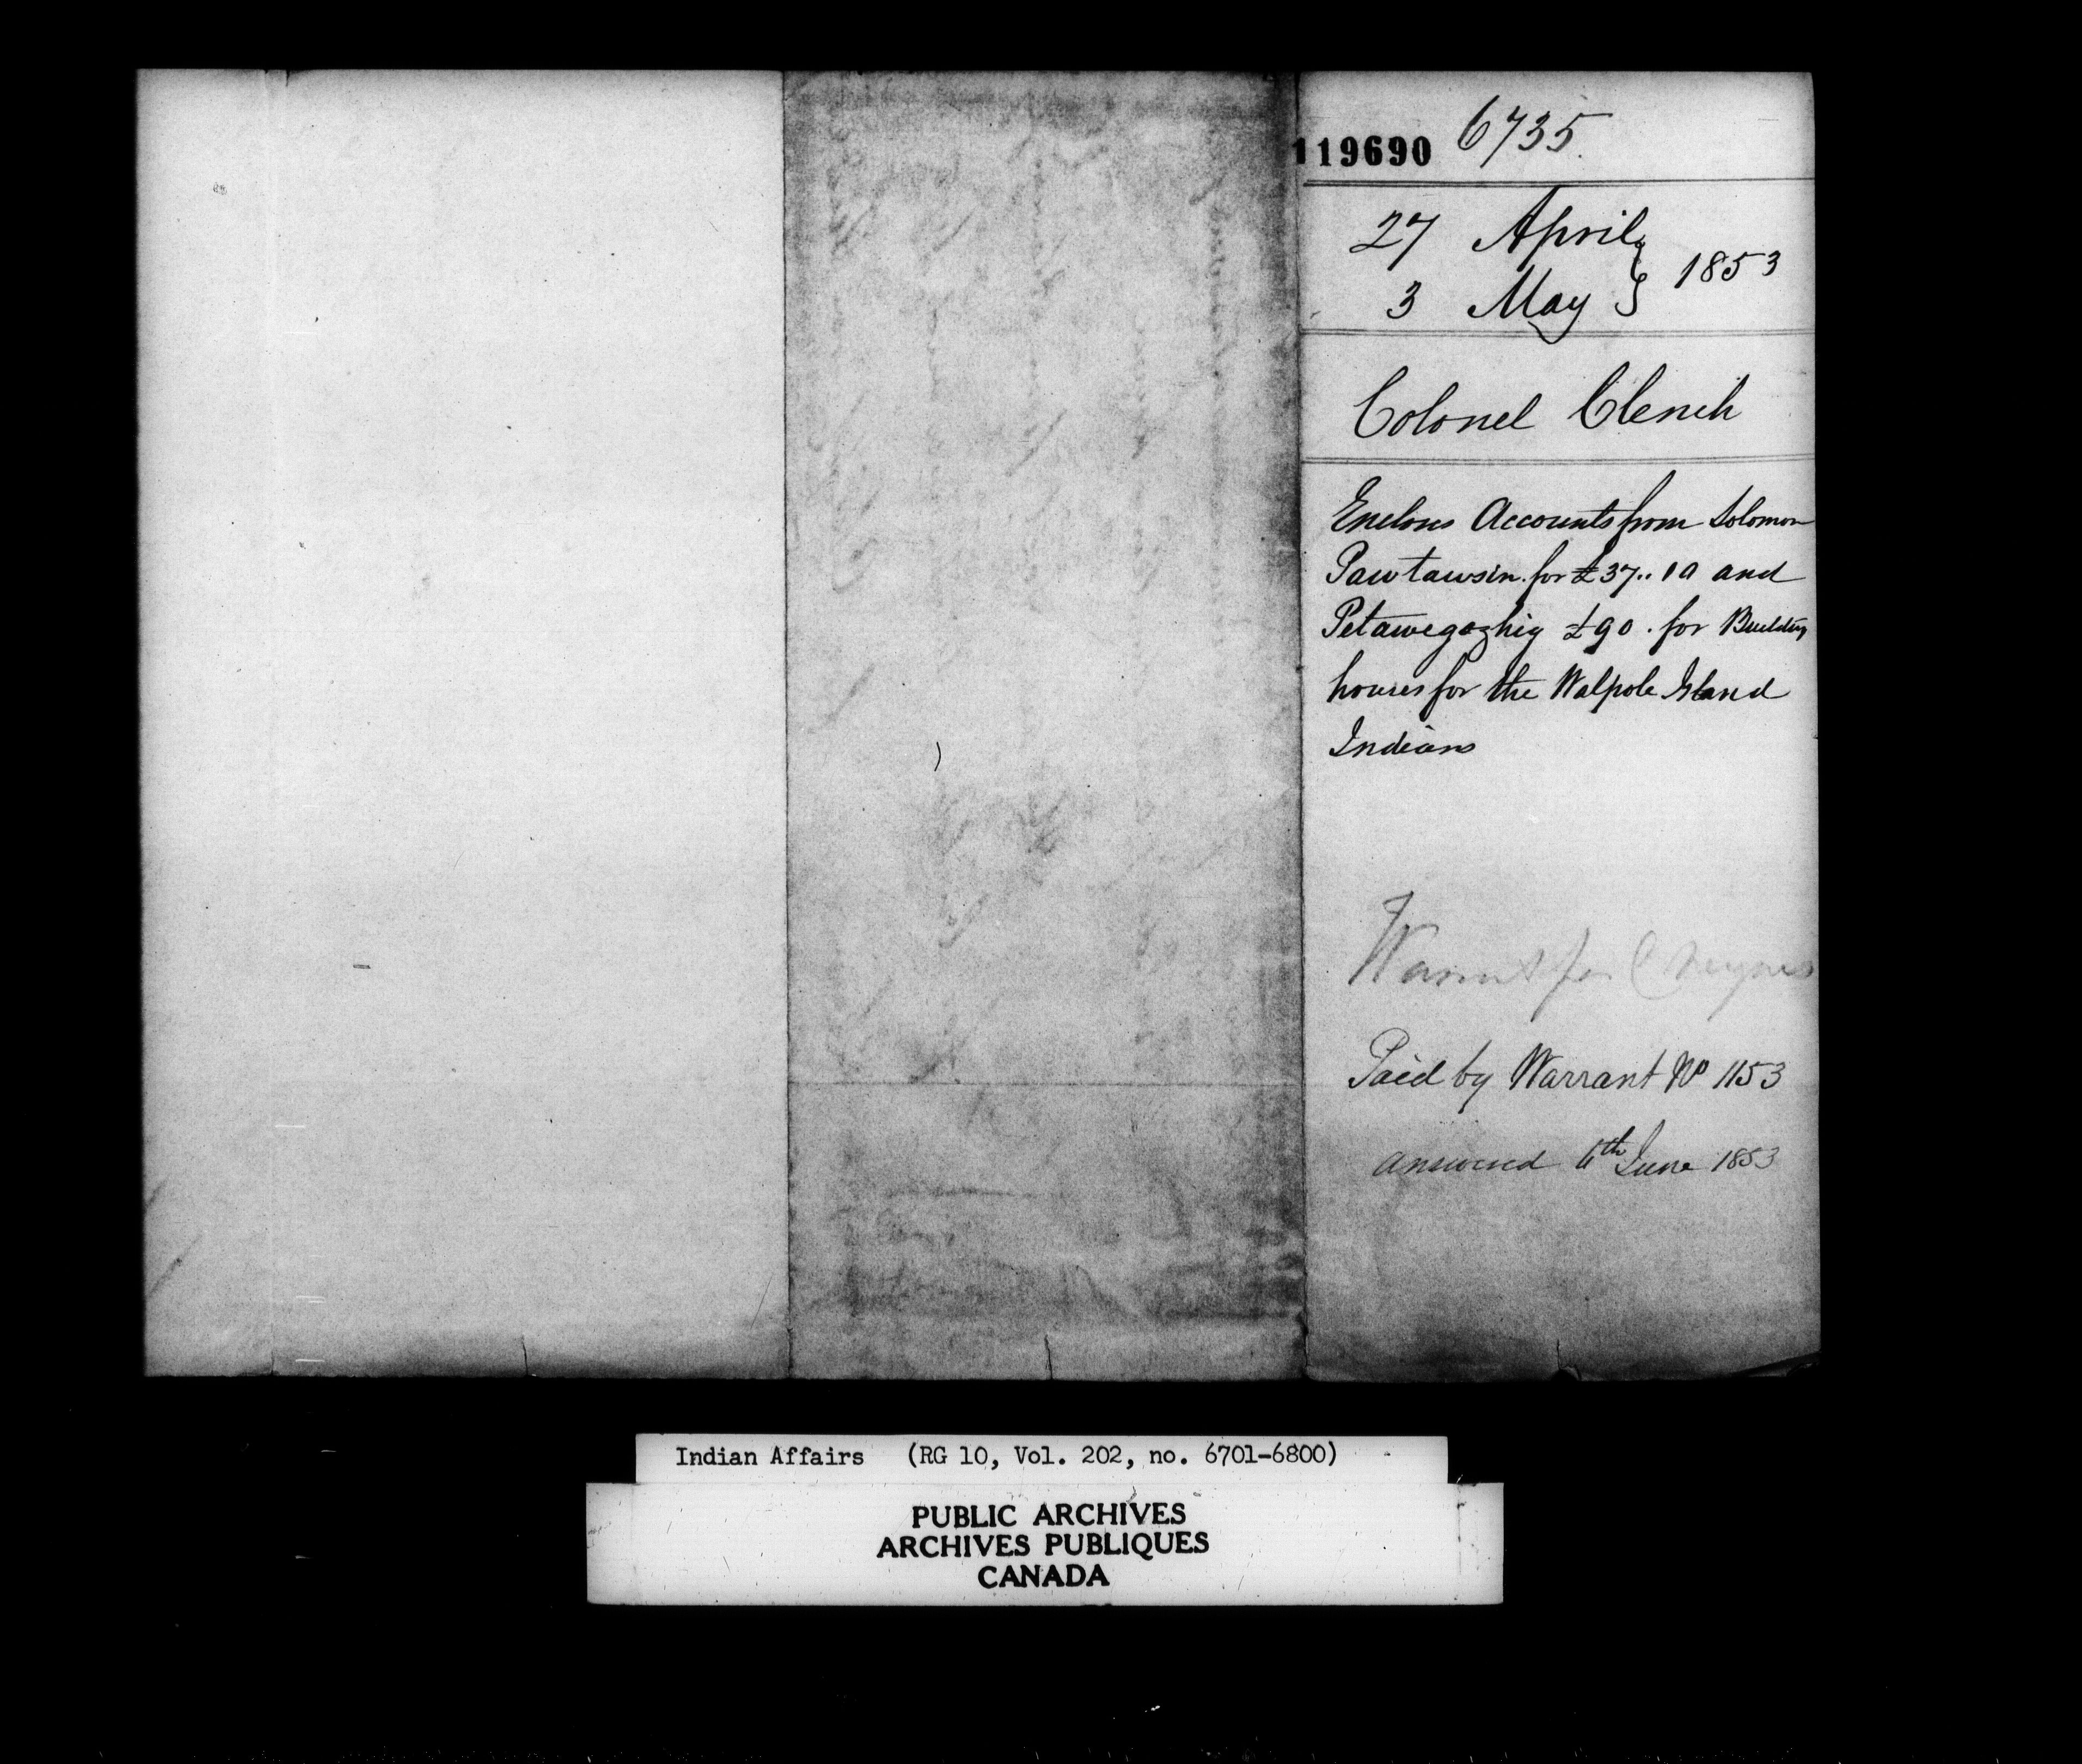 119690 6735.
27 April
3 May } 1853
Colonel Clench
Encloses Accounts from Solomon
Pawtawsin for £37..10 and
Petawegozhig £90. for Building
houses for the Walpole Island
Indians
Paid by Warrant No 1153
answered 6th June 1853
Indian Affairs (RG 10, Vol. 202, no. 6701-6800)
PUBLIC ARCHIVES
ARCHIVES PUBLIQUES
CANADA